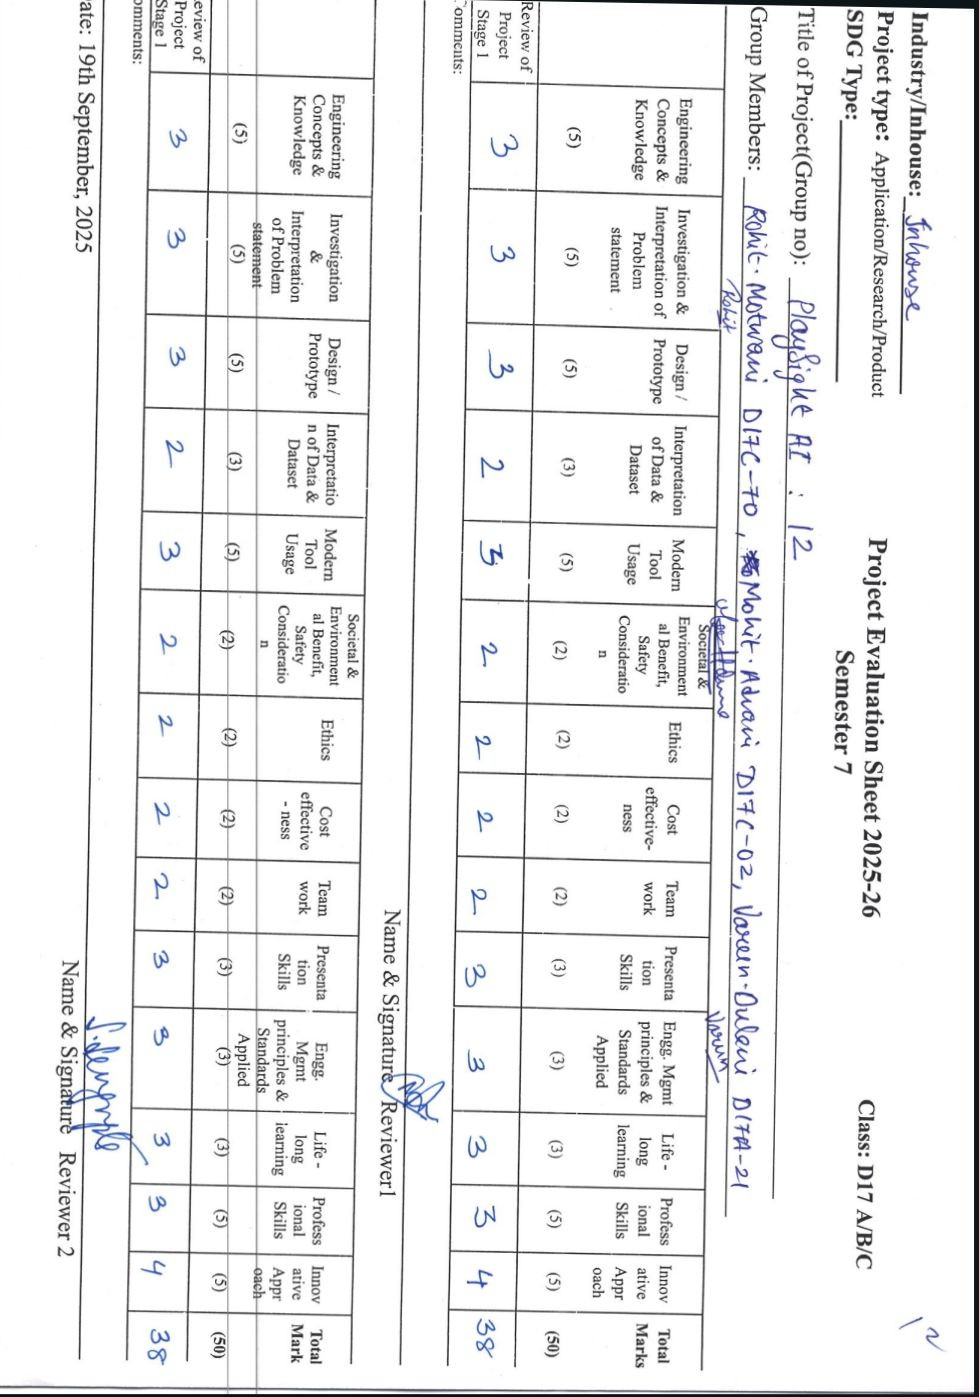 12
Industry/Inhouse: Inhouse
Project Evaluation Sheet 2025-26
Class: D17 A/B/C
Project type: Application/Research/Product
Semester 7
SDG Type:
Title of Project(Group no): PlaySight AI : 12
Group Members: Rohit. Motwani D17C-70, Mohit. Advani D17C-02, Vareen. Dulani D17A-21
Rohit
Varun
Engineering Concepts & Knowledge
Investigation & Interpretation of Problem statement
Design / Prototype
Interpretation of Data & Dataset
Modern Tool Usage
Societal & Environment al Benefit, Safety Consideratio n
Ethics
Cost effective- ness
Team work
Presenta tion Skills
Engg. Mgmt principles & Standards Applied
Life - long learning
Profess ional Skills
Innov ative Appr oach
Total Marks
(5) (5) (5) (3) (5) (2) (2) (2) (2) (3) (3) (3) (5) (5) (50)
Review of Project Stage 1
3 3 3 2 3 2 2 2 2 3 3 3 3 4 38
omments:
Name & Signature Reviewer1
Engineering Concepts & Knowledge
Investigation & Interpretation of Problem statement
Design / Prototype
Interpretatio n of Data & Dataset
Modern Tool Usage
Societal & Environment al Benefit, Safety Consideratio n
Ethics
Cost effective - ness
Team work
Presenta tion Skills
Engg. Mgmt principles & Standards Applied
Life - long learning
Profess ional Skills
Innov ative Appr oach
Total Mark
(5) (5) (5) (3) (5) (2) (2) (2) (2) (3) (3) (3) (5) (5) (50)
eview of Project Stage 1
3 3 3 2 3 2 2 2 2 3 3 3 3 4 38
omments:
ate: 19th September, 2025
Name & Signature Reviewer 2